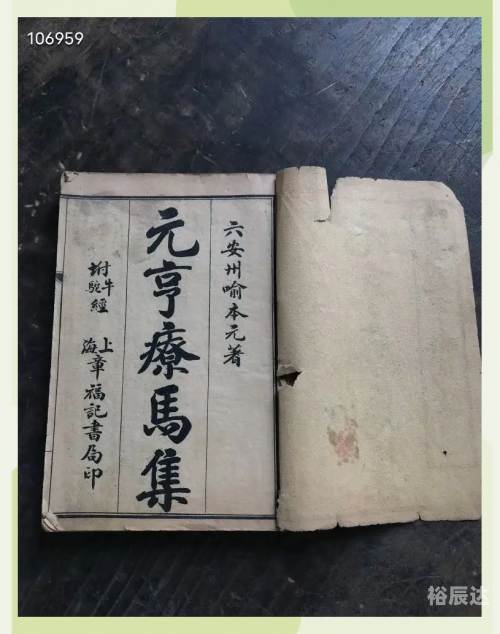 106959
六安州喻本元著
元亨療馬集
附牛駝經
上海章福記書局印
裕辰达